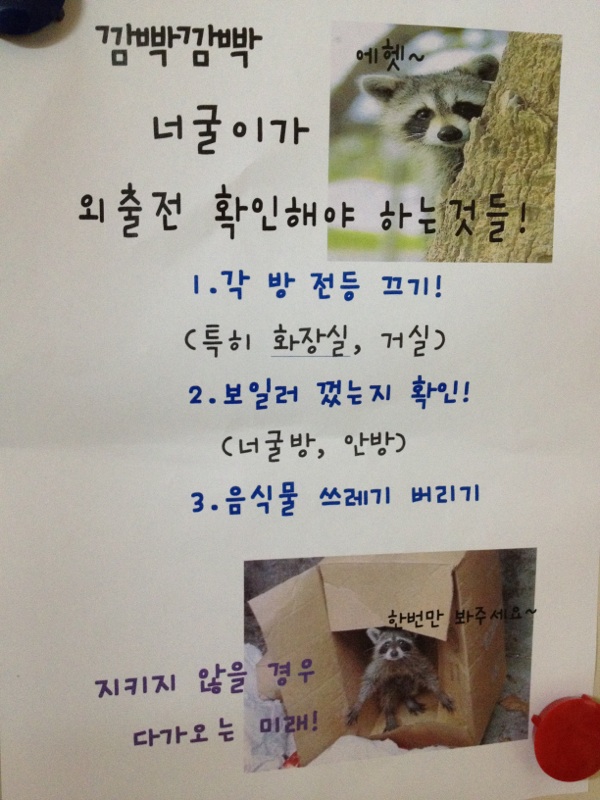 깜빡깜빡
에헷~
너굴이가
외출전 확인해야 하는것들!
1.각 방 전등 끄기!
(특히 화장실, 거실)
2.보일러 껐는지 확인!
(너굴방, 안방)
3.음식물 쓰레기 버리기
한번만 봐주세요~
지키지 않을 경우
다가오는 미래!